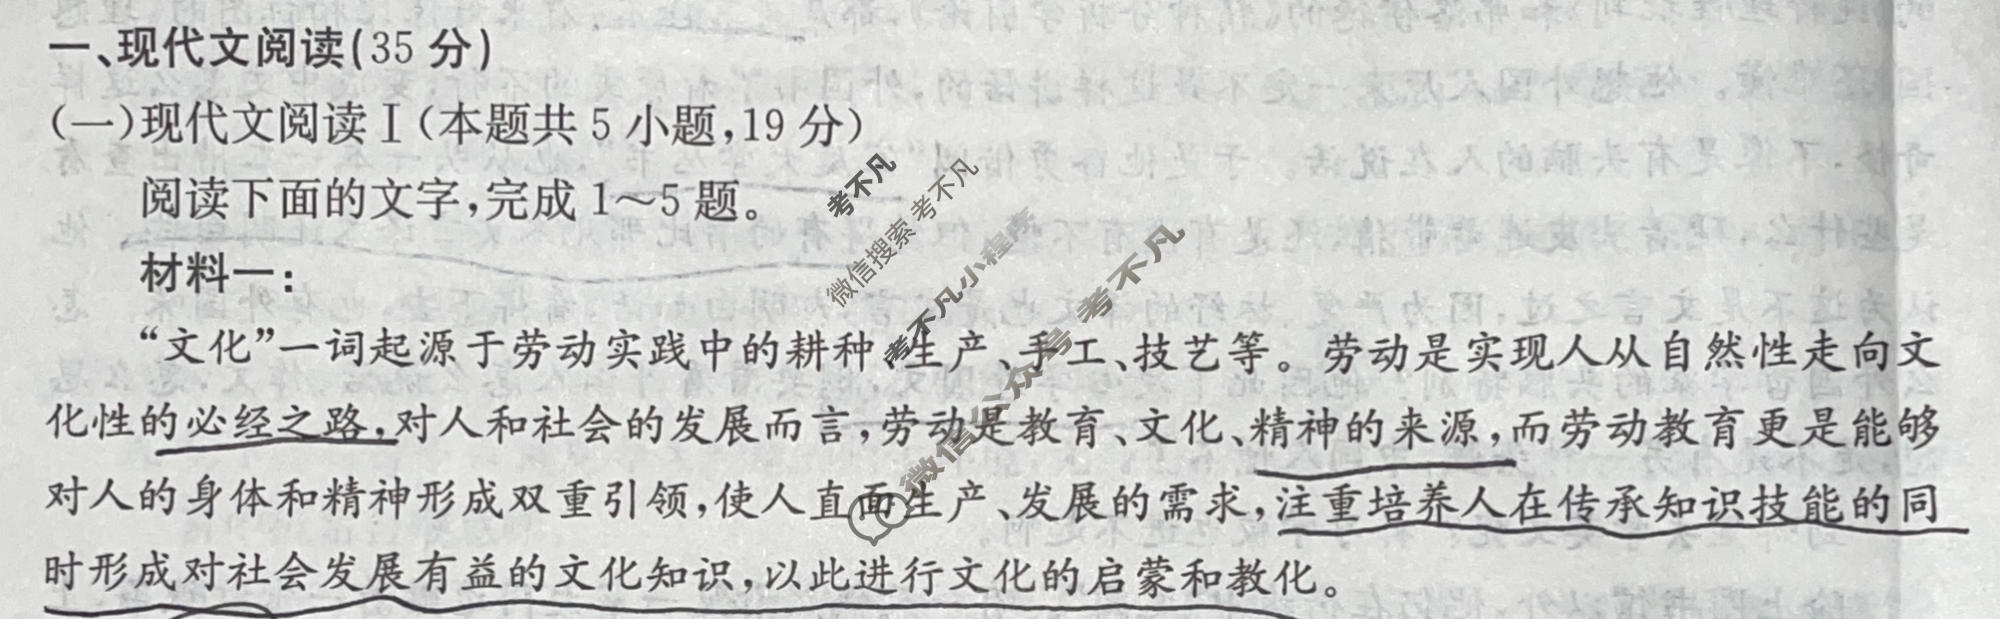 一、现代文阅读(35 分)
(一)现代文阅读Ⅰ(本题共 5 小题,19 分)
阅读下面的文字,完成 1～5 题。
材料一:
“文化”一词起源于劳动实践中的耕种、生产、手工、技艺等。劳动是实现人从自然性走向文
化性的必经之路,对人和社会的发展而言,劳动是教育、文化、精神的来源,而劳动教育更是能够
对人的身体和精神形成双重引领,使人直面生产、发展的需求,注重培养人在传承知识技能的同
时形成对社会发展有益的文化知识,以此进行文化的启蒙和教化。
考不凡
微信搜索 考不凡
考不凡小程序
微信公众号 考不凡